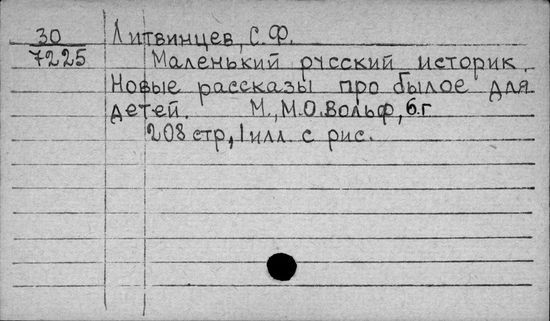 30 Литвинцев, С.Ф.
7225 Маленький русский историк.
Новые рассказы про былое для
детей. М., М.О. Вольф, б.г
208 стр., 1 илл. с рис.